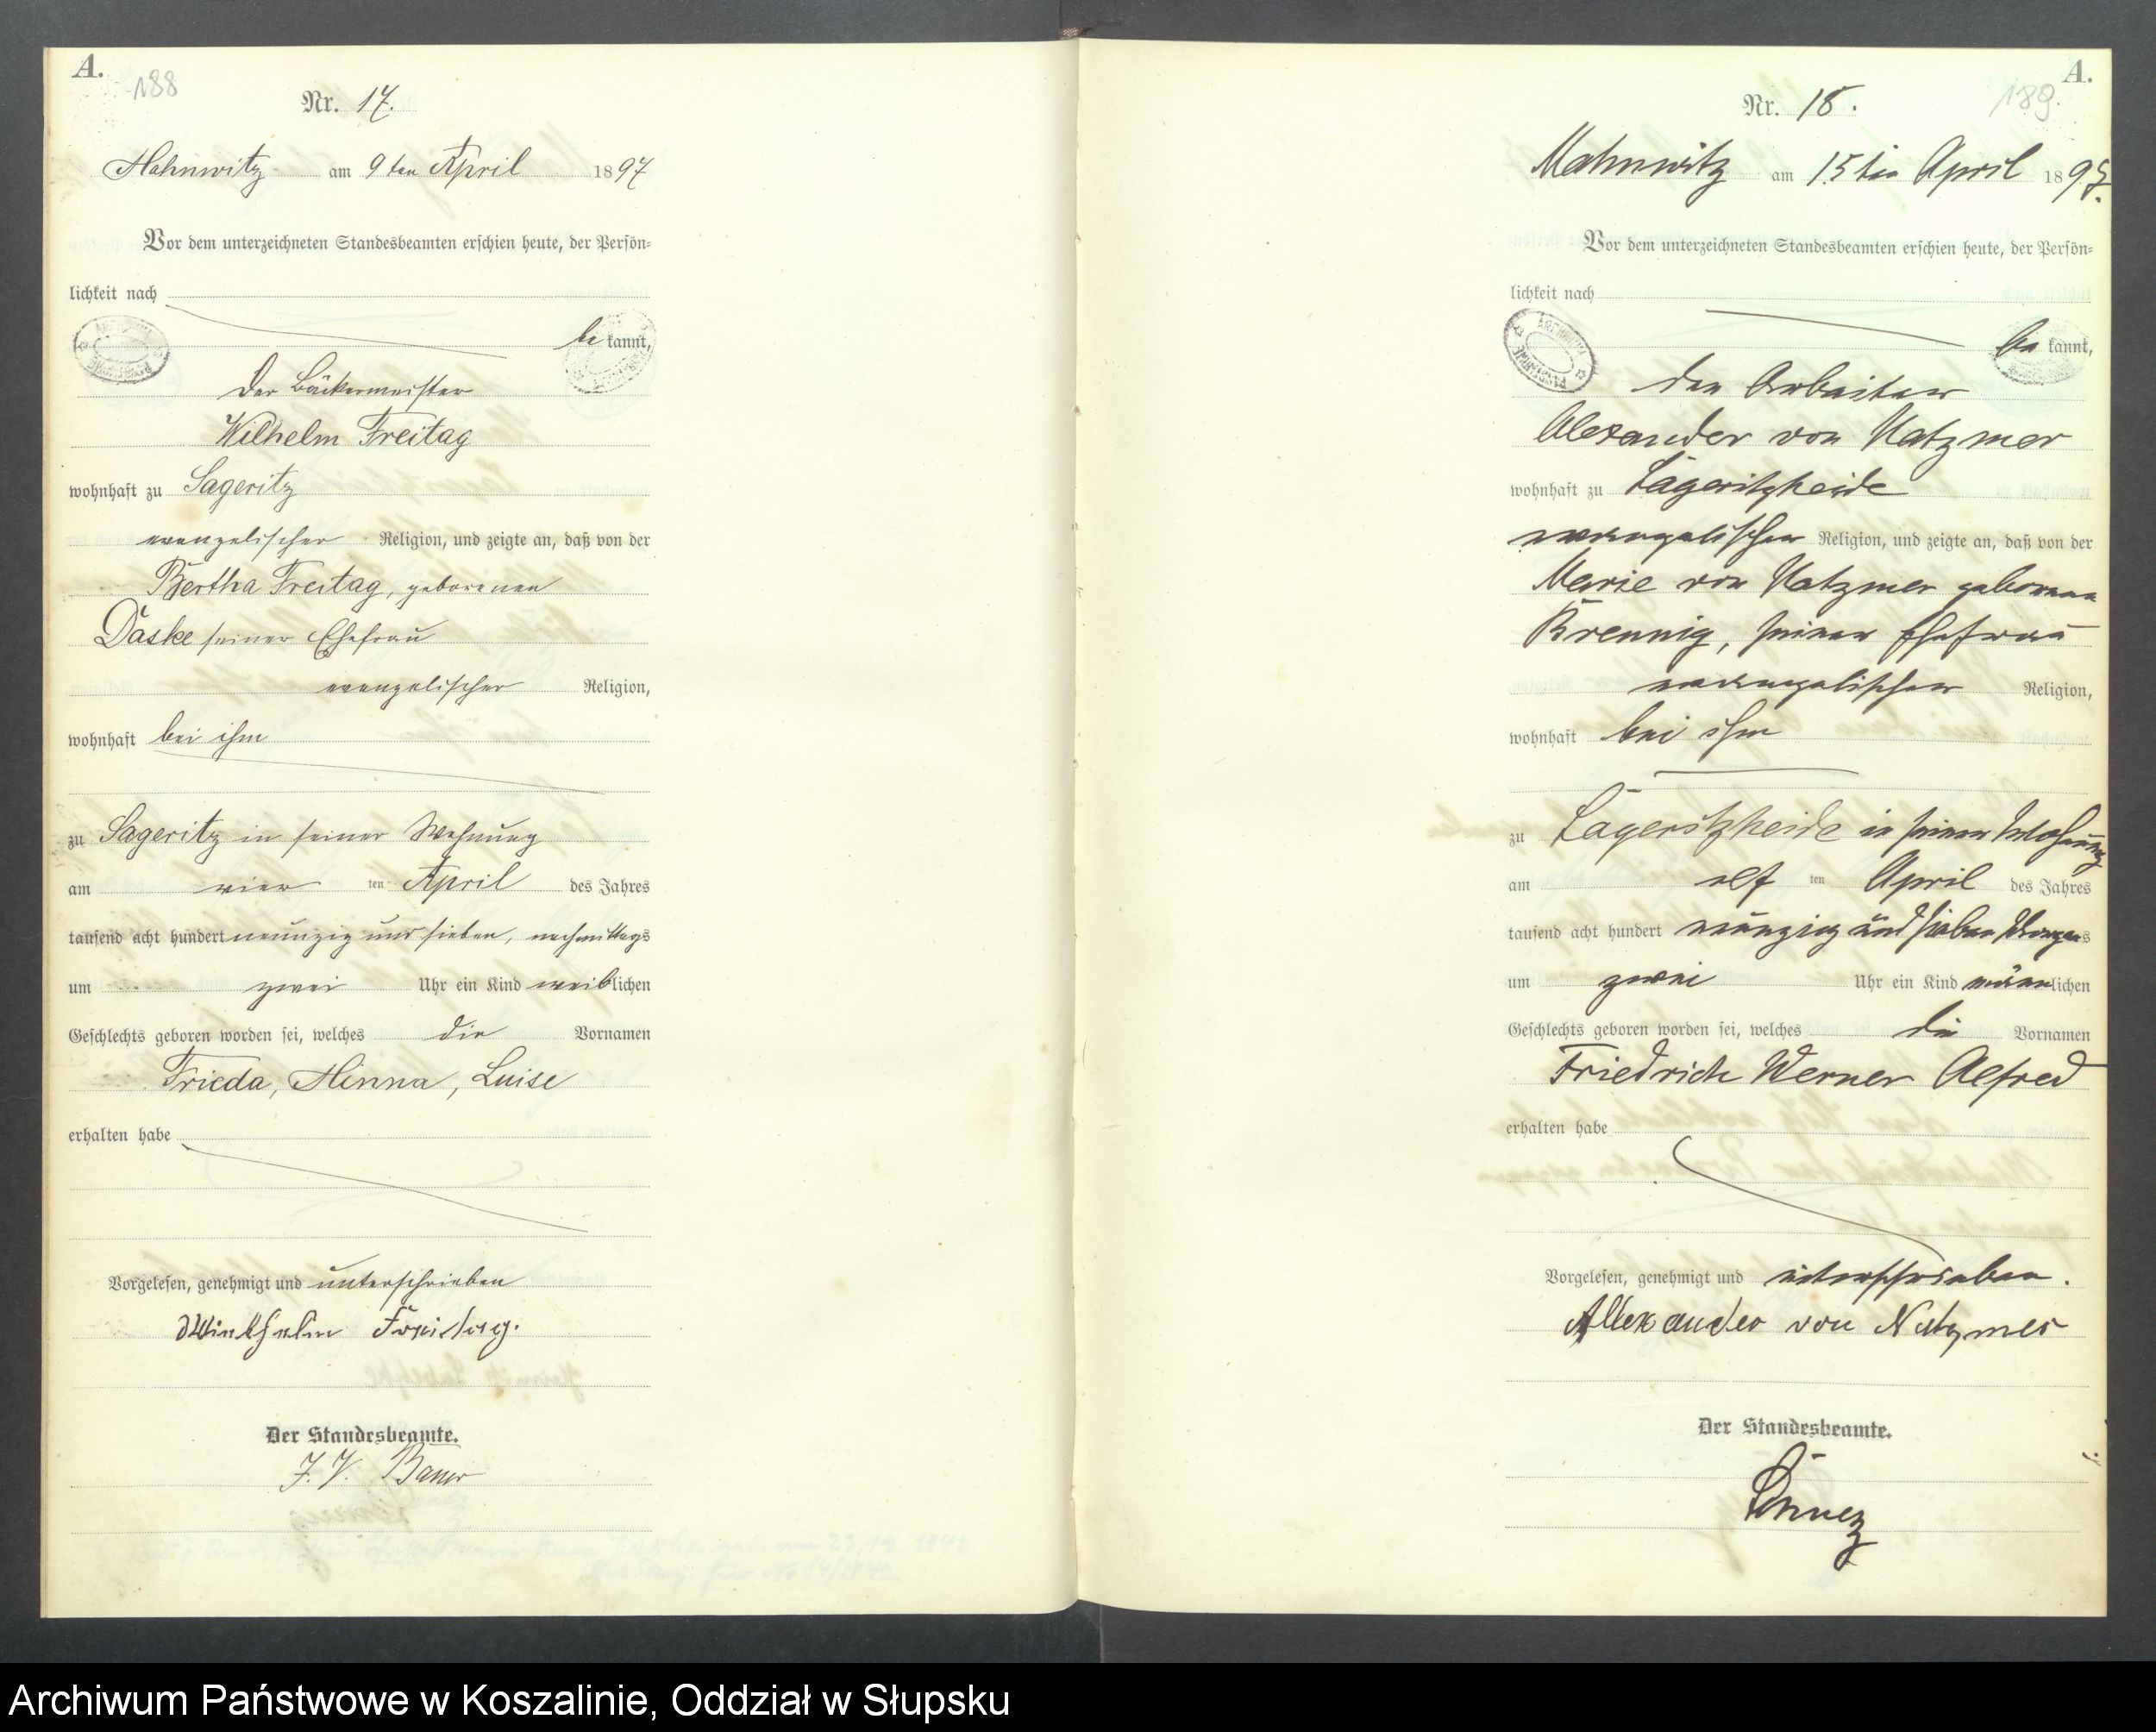 A.
188
Nr. 17.
Mahnwitz am 9ten April 1897
Vor dem unterzeichneten Standesbeamten erschien heute, der Persön=
lichkeit nach
bekannt,
der Bäckermeister
Wilhelm Freitag
wohnhaft zu Sageritz
evangelischer Religion, und zeigte an, daß von der
Bertha Freitag, geborenen
Daske seiner Ehefrau
evangelischer Religion,
wohnhaft bei ihm
zu Sageritz in seiner Wohnung
am vier ten April des Jahres
tausend acht hundert neunzig und sieben, nachmittags
um zwei Uhr ein Kind weiblichen
Geschlechts geboren worden sei, welches die Vornamen
Frieda, Minna, Luise
erhalten habe
Vorgelesen, genehmigt und unterschrieben
Freitag.
Der Standesbeamte.
J. V. Bauer
A.
189.
Nr. 18.
Mahnwitz am 15ten April 1897.
Vor dem unterzeichneten Standesbeamten erschien heute, der Persön=
lichkeit nach
bekannt,
der Arbeiter
Alexander von Natzmer
wohnhaft zu Sägeritzheide
evangelischer Religion, und zeigte an, daß von der
Marie von Natzmer geborene
Krennig, seiner Ehefrau
evangelischer Religion,
wohnhaft bei ihm
zu Sägeritzheide in seiner Wohnung
am elf ten April des Jahres
tausend acht hundert neunzig und sieben Morgens
um zwei Uhr ein Kind männlichen
Geschlechts geboren worden sei, welches die Vornamen
Friedrich Werner Alfred
erhalten habe
Vorgelesen, genehmigt und unterschrieben.
Allexander von Natzmer
Der Standesbeamte.
Archiwum Państwowe w Koszalinie, Oddział w Słupsku